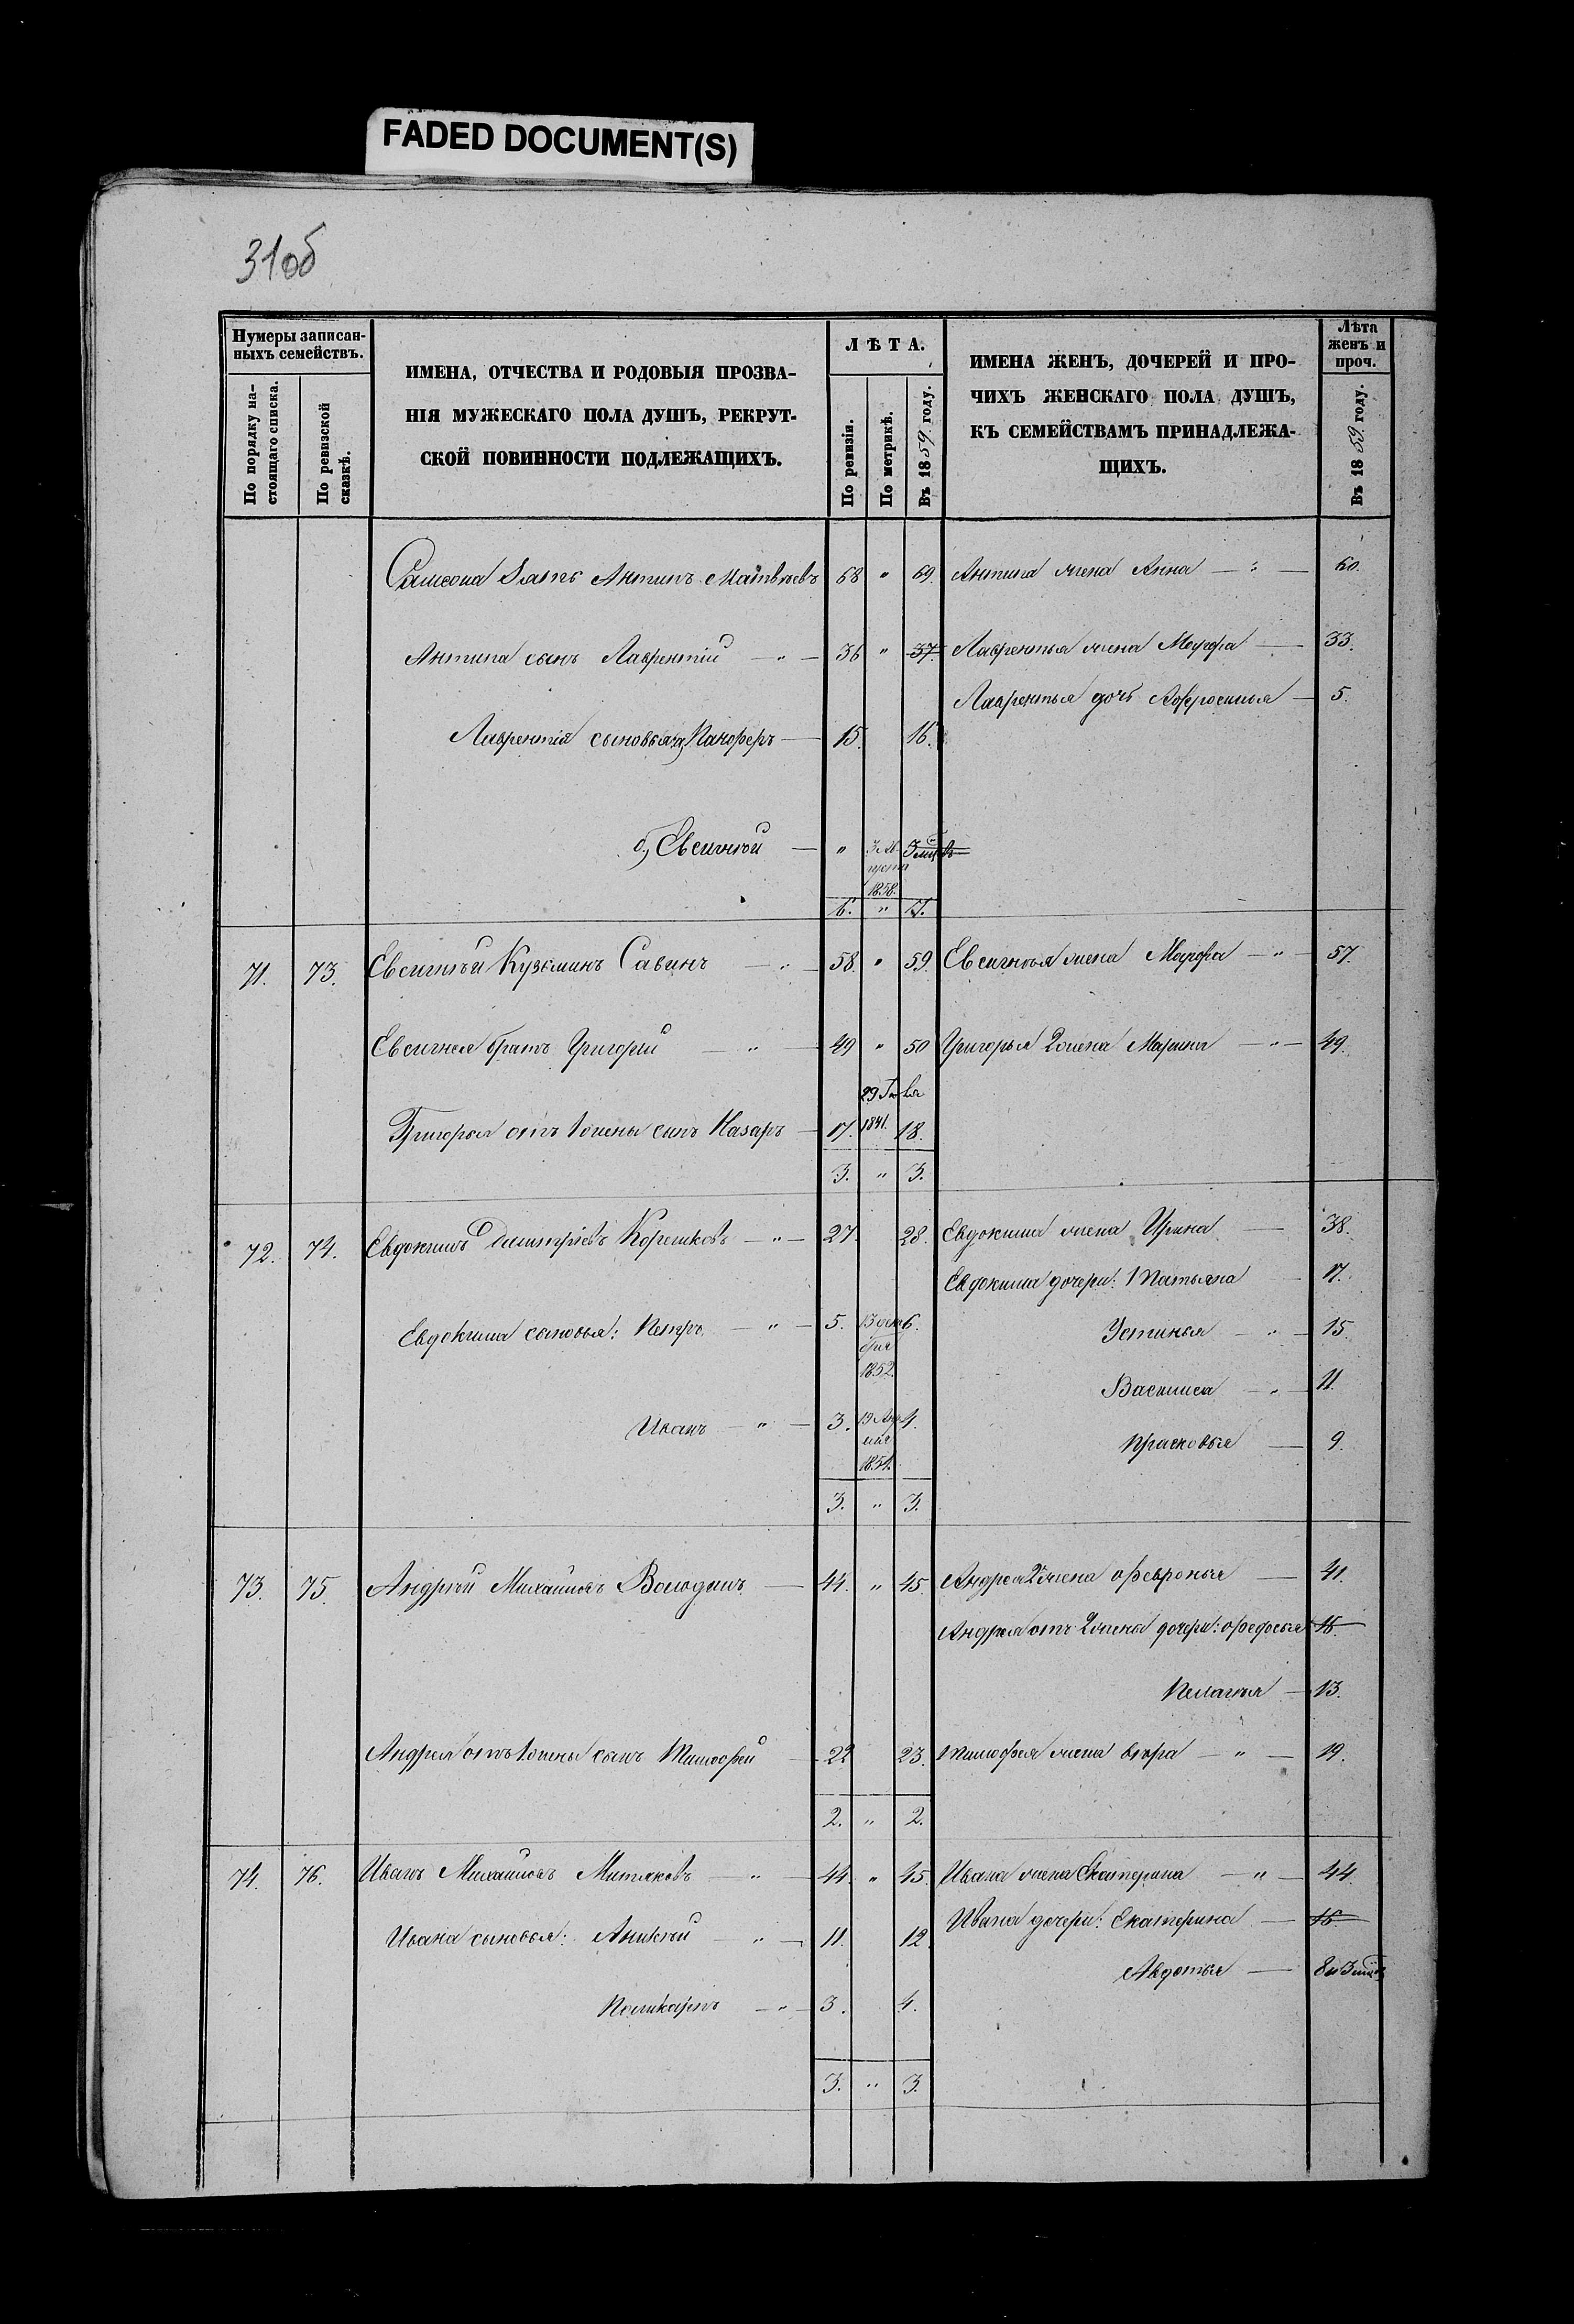 FADED DOCUMENT(S)
31об
Нумеры записан-
ныхъ семействъ.
По порядку на-
стоящаго списка.
По ревизской
сказкѣ.
ИМЕНА, ОТЧЕСТВА И РОДОВЫЯ ПРОЗВА-
НІЯ МУЖЕСКАГО ПОЛА ДУШЪ, РЕКРУТ-
СКОЙ ПОВИННОСТИ ПОДЛЕЖАЩИХЪ.
ЛѢТА.
По ревизіи.
По метрикѣ.
Въ 1859 году.
ИМЕНА ЖЕНЪ, ДОЧЕРЕЙ И ПРО-
ЧИХЪ ЖЕНСКАГО ПОЛА ДУШЪ,
КЪ СЕМЕЙСТВАМЪ ПРИНАДЛЕЖА-
ЩИХЪ.
Лѣта
женъ и
проч.
Въ 1859 году.
Самсона зять Антипъ Матвѣевъ 68 " 69. Антипа жена Анна — " — 60.
Антипа сынъ Лаврентій — " — 36 " 37. Лаврентья жена Марфа — 33.
Лаврентья дочь Афросинья — 5.
Лаврентія сыновья: а) Панферъ — 15. 16.
б) Евсигнѣй — " 3 Ав 3 мѣс
густа
1858.
6. "
71. 73. Евсигнѣй Кузьминъ Савинъ — " — 58. " 59. Евсигнѣя жена Марфа — " — 57.
Евсигнея братъ Григорій — " — 49 " 50 Григорья 2 жена Марина — " — 49.
29 Ген вря
Григорья отъ 1 жены сынъ Назаръ — 17. 1841. 18.
3. " 3.
72. 74. Евдокимъ Дмитріевъ Корешковъ — " — 27. 28. Евдокима жена Ирина — 38.
Евдокима дочери: Татьяна — 17.
Евдокима сыновья: Петръ — " — 5. 13 окт 6. Устинья — " — 15.
ября
1852.
Васлиса — " — 11.
Иванъ — " — 3. 19 Апр 4.
еля
1854.
Прасковья — 9.
3. " 3.
73. 75. Андрѣй Михайловъ Володинъ — 44. " 45. Андрея 2 жена Февронья — 41.
Андрея отъ 2 жены дочери: Федосья 16.
Пелагья — 13.
Андрея отъ 1 жены сынъ Тимофей — 22 23. Тимофея жена Вѣра — " — 19.
2. " 2.
74. 76. Иванъ Михайловъ Митяковъ — " — 44. " 45. Ивана жена Екатерина — " — 44.
Ивана дочери: Екатерина — 16.
Ивана сыновья: Аникѣй — " — 11. 12.
Авдотья — 8 и 3 мѣс
Поликарпъ — " — 3. 4.
3. " 3.